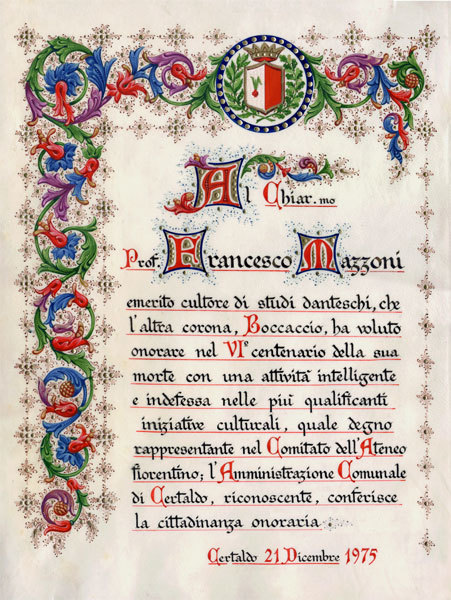 Al Chiar.mo
Prof. Francesco Mazzoni
emerito cultore di studi danteschi, che
l'altra corona, Boccaccio, ha voluto
onorare nel VI° centenario della sua
morte con una attività intelligente
e indefessa nelle più qualificanti
iniziative culturali, quale degno
rappresentante nel Comitato dell'Ateneo
fiorentino; l'Amministrazione Comunale
di Certaldo, riconoscente, conferisce
la cittadinanza onoraria
Certaldo 21 Dicembre 1975